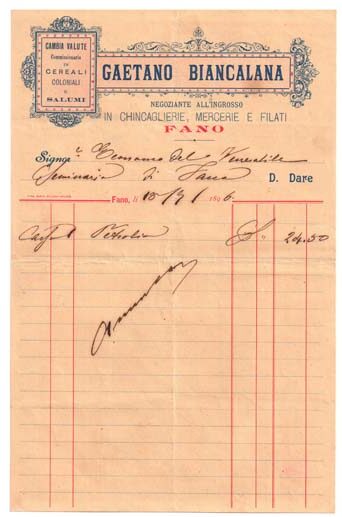 CAMBIA VALUTE
Commissionario
IN
CEREALI
COLONIALI
E
SALUMI
GAETANO BIANCALANA
NEGOZIANTE ALL'INGROSSO
IN CHINCAGLIERIE, MERCERIE E FILATI
FANO
Signor Economo del Venerabile
Seminario di Fano D. Dare
Fano, li 10/7/ 1896.
Petrolio 24.50